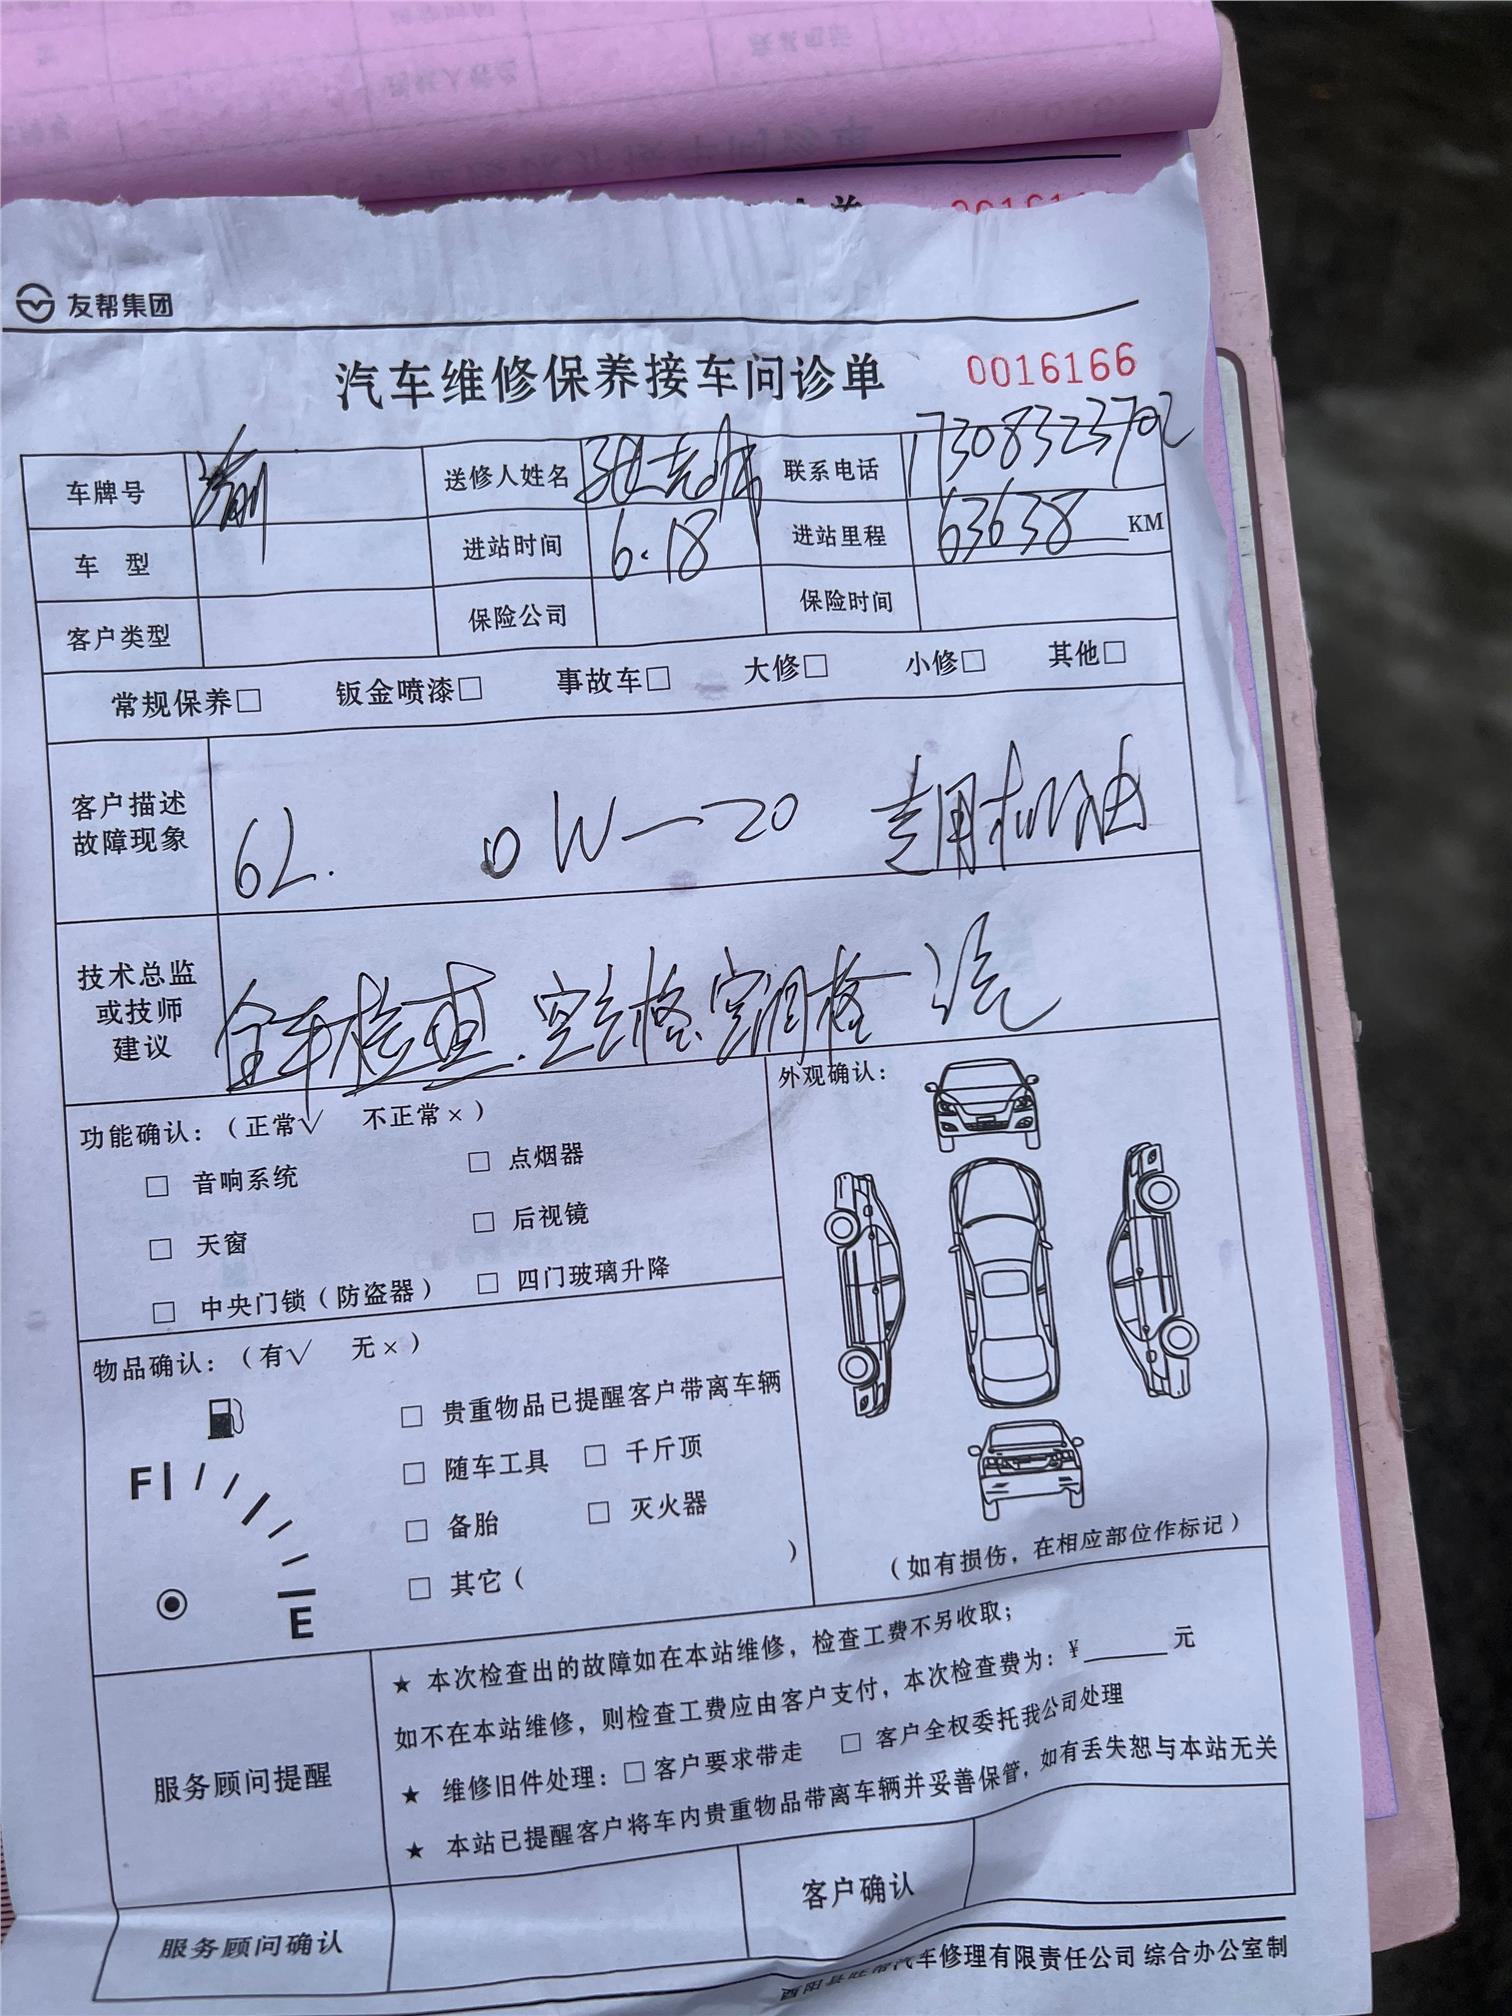 友帮集团
汽车维修保养接车问诊单 0016166
车牌号 渝 送修人姓名 联系电话 17308323702
车 型 进站时间 6.18 进站里程 63638 KM
客户类型 保险公司 保险时间
常规保养□ 钣金喷漆□ 事故车□ 大修□ 小修□ 其他□
客户描述
故障现象
6L. 0W—20 专用机油
技术总监
或技师
建议
全车检查.空气格、空调格
功能确认：（正常√ 不正常×）
□ 音响系统 □ 点烟器
□ 天窗 □ 后视镜
□ 中央门锁（防盗器） □ 四门玻璃升降
外观确认：
（如有损伤，在相应部位作标记）
物品确认：（有√ 无×）
□ 贵重物品已提醒客户带离车辆
□ 随车工具 □ 千斤顶
□ 备胎 □ 灭火器
□ 其它（ ）
F
E
服务顾问提醒
★ 本次检查出的故障如在本站维修，检查工费不另收取；
如不在本站维修，则检查工费应由客户支付，本次检查费为：¥______元
★ 维修旧件处理：□ 客户要求带走 □ 客户全权委托我公司处理
★ 本站已提醒客户将车内贵重物品带离车辆并妥善保管，如有丢失恕与本站无关
服务顾问确认 客户确认
酉阳县旺帮汽车修理有限责任公司 综合办公室制